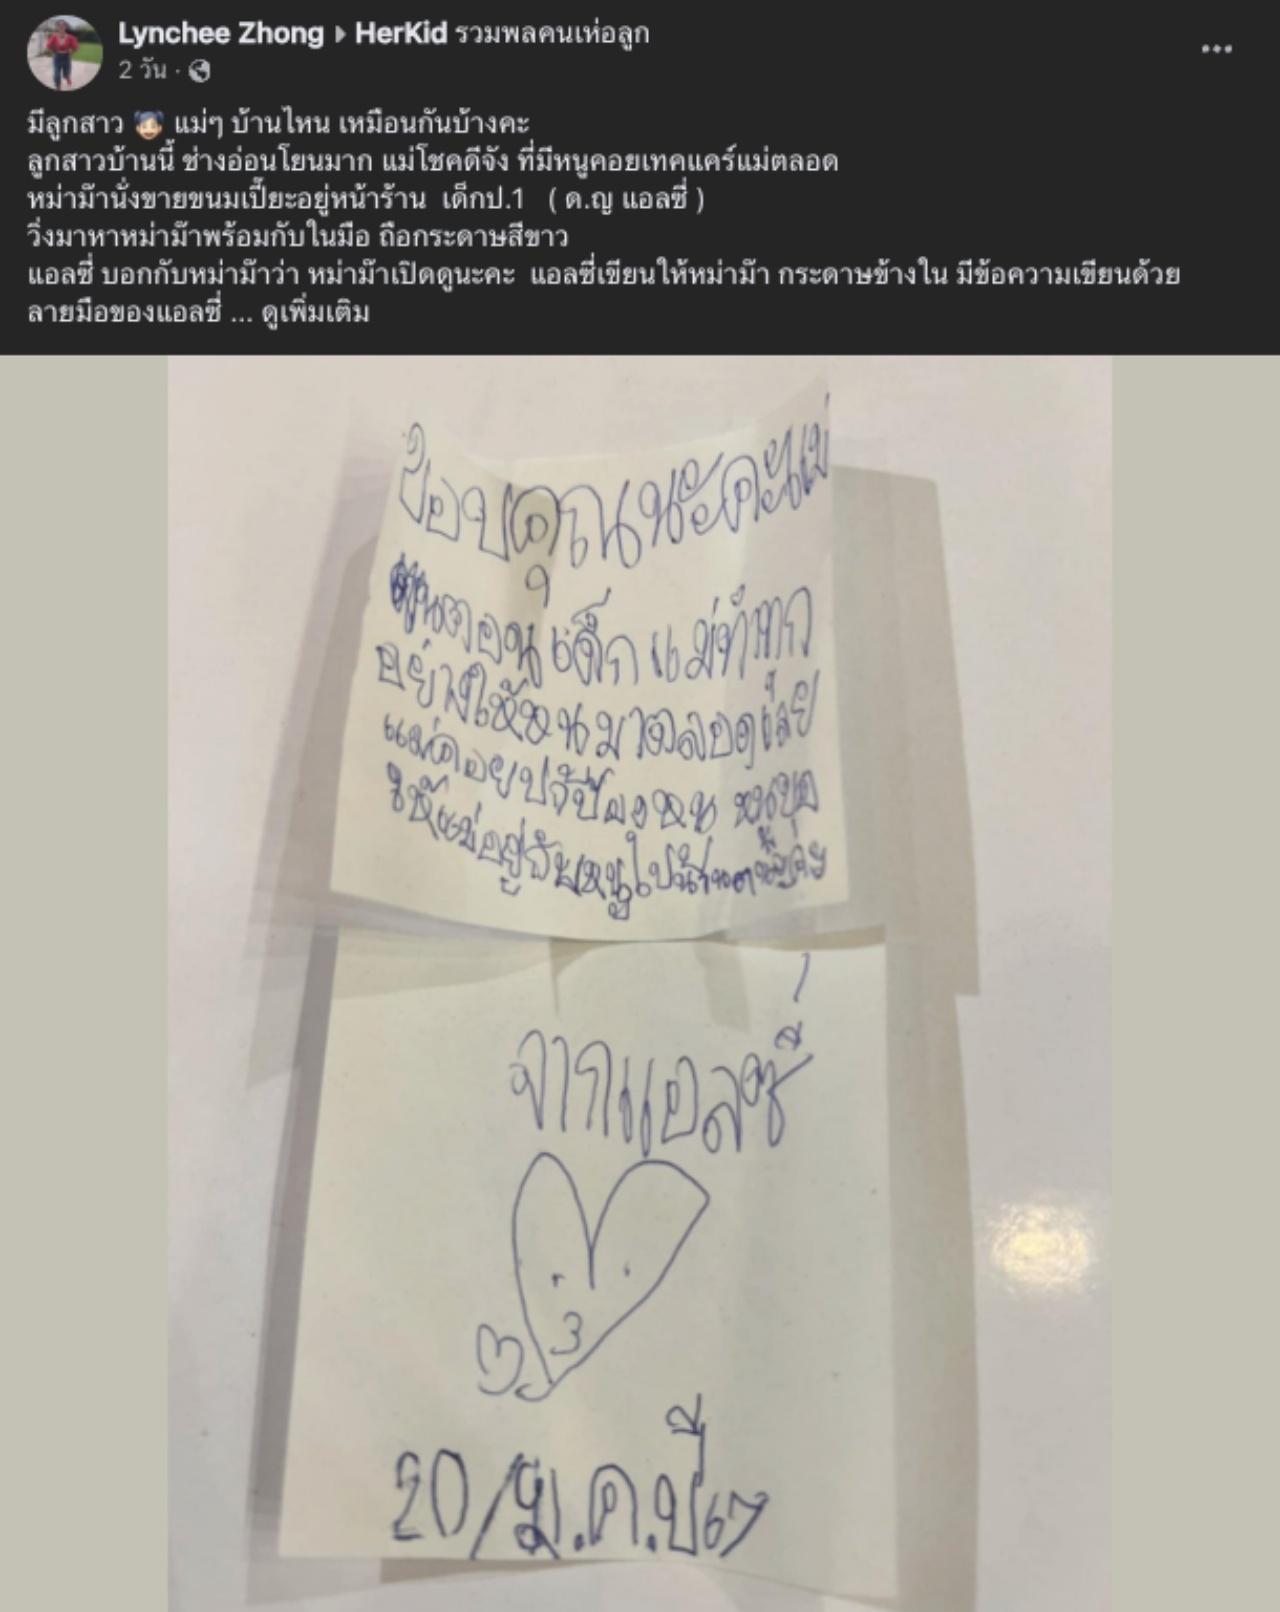 Lynchee Zhong ▸ HerKid รวมพลคนเห่อลูก
2 วัน ·
มีลูกสาว 👧🏻 แม่ๆ บ้านไหน เหมือนกันบ้างคะ
ลูกสาวบ้านนี้ ช่างอ่อนโยนมาก แม่โชคดีจัง ที่มีหนูคอยเทคแคร์แม่ตลอด
หม่าม๊านั่งขายขนมเปี๊ยะอยู่หน้าร้าน เด็กป.1 ( ด.ญ แอลซี่ )
วิ่งมาหาหม่าม๊าพร้อมกับในมือ ถือกระดาษสีขาว
แอลซี่ บอกกับหม่าม๊าว่า หม่าม๊าเปิดดูนะคะ แอลซี่เขียนให้หม่าม๊า กระดาษข้างใน มีข้อความเขียนด้วย
ลายมือของแอลซี่ ... ดูเพิ่มเติม
ขอบคุณนะคะแม่
ตอนเด็กแม่ทำทุก
อย่างให้หนูมาตลอดเลย
แม่คอย
ให้แม่อยู่กับหนูไปนาน
จากแอลซี่
20/ม.ค.ปี67